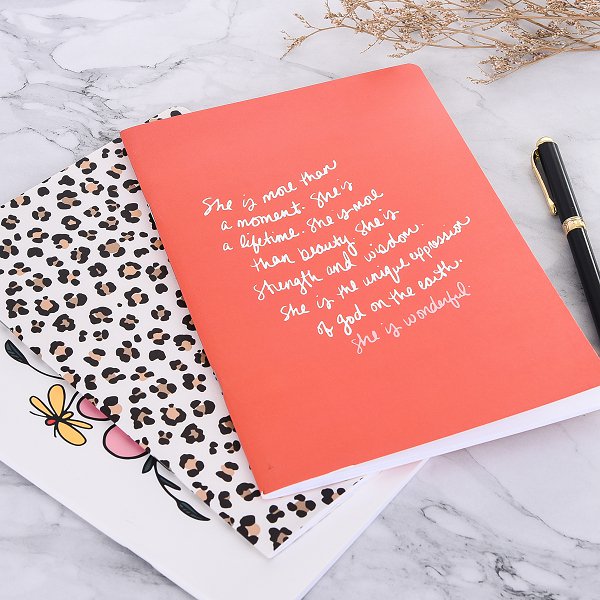 She is more than
a moment. She's
a lifetime. She is more
than beauty She's
strength and wisdom.
She is the unique expression
of god on the earth.
She is wonderful.